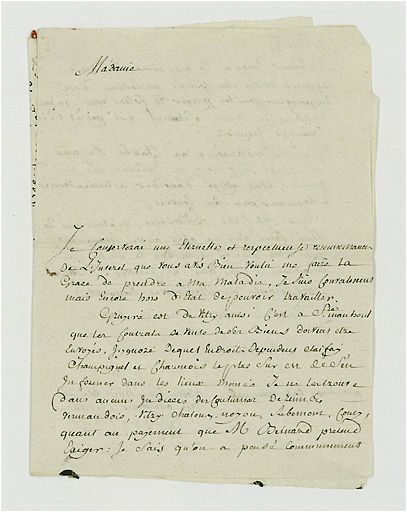 Madame
Je Conserverai une Eternelle et respectueuse reconnoissance
de L'Interet que vous avés Bien Voulu me faire La
Grace de prendre a Ma Maladie, Je suis Convalescent
mais Encore hors d'Etat de pouvoir travailler.
est de Vitry aussi C'est a
que les Contrats de Vente de Ses Biens doivent etre
Envoyés, J'ignore Dequel Endroit Dependent
Champignet et Charmois le plus Sur est de S'en
Informer dans les lieux Je ne les trouve
Dans aucuns Indices des Coutumes De
Vermandois, Vitry Chalons, noyon, Coucy,
quant au payement que M. Bernard pretend
Exiger: Je Sais qu'on a pensé Communement